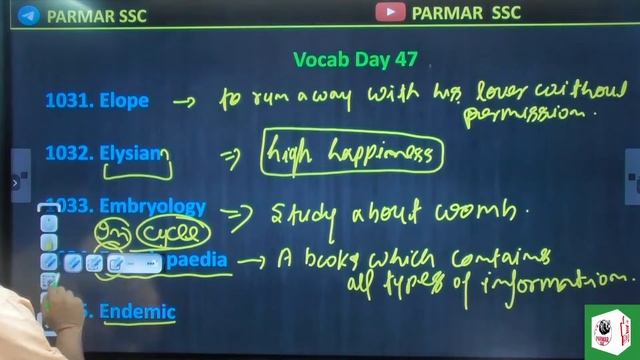 PARMAR SSC
PARMAR SSC
Vocab Day 47
1031. Elope → to run away with his lover without
permission.
1032. Elysian ⇒ high happiness
1033. Embryology ⇒ Study about womb.
In cycle
paedia → A books which contains
all types of information.
Endemic
PARMAR
SSC